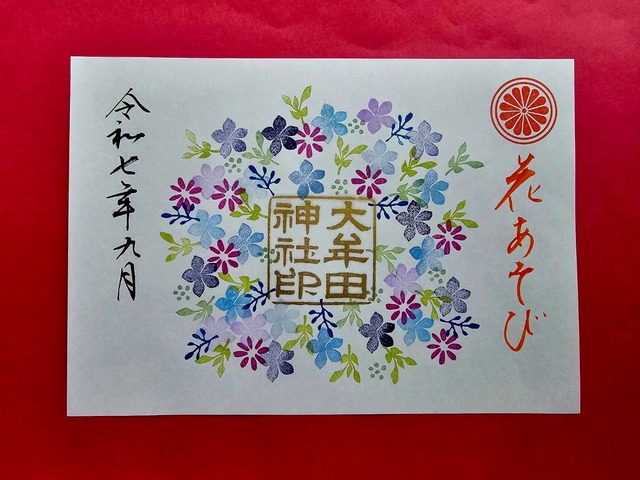 花あそび
大牟田
神社印
令和七年九月